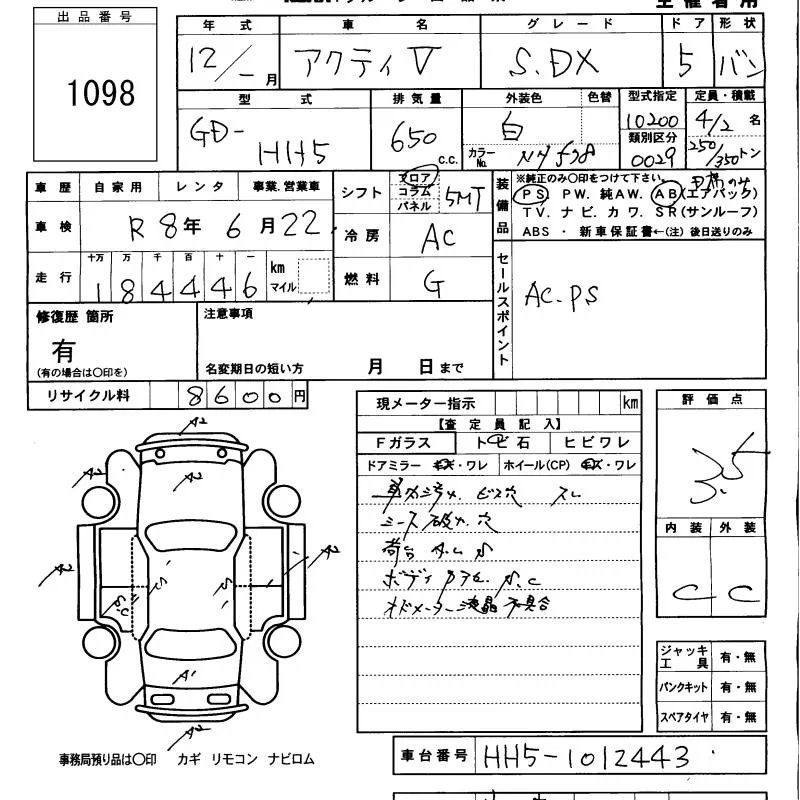 主催者用
出品番号
1098
年式 車名 グレード ドア 形状
12/ー月 アクティV S.DX 5 バン
型式 排気量 外装色 色替 型式指定 定員・積載
GD-HH5 650 c.c. 白 カラーNo. 10200 4/2名
類別区分
0029 250/350トン
車歴 自家用 レンタ 事業.営業車
車検 R8年6月22
走行 十万 万 千 百 十 一 km マイル
184446
シフト フロア コラム パネル 5MT
冷房 AC
燃料 G
装備品
※純正のみ〇印をつけて下さい。
PS. PW. 純AW. AB(エアバック)
TV. ナビ. カワ. SR(サンルーフ)
ABS ・ 新車保証書←(注) 後日送りのみ
セールスポイント
AC.PS
修復歴 箇所
有
(有の場合は〇印を)
注意事項
名変期日の短い方 月 日まで
リサイクル料 8600円
現メーター指示 km
【査定員記入】
Fガラス トビ石 ヒビワレ
ドアミラー キズ・ワレ ホイール(CP) キズ・ワレ
ビス穴 スレ
シート 破れ.穴
荷台
ボディ
オドメーター液晶不具合
評価点
3.5
内装 外装
C C
A2
A2
A2
A2
A2
S.C
A1
A2
ジャッキ工具 有・無
パンクキット 有・無
スペアタイヤ 有・無
事務局預り品は〇印 カギ リモコン ナビロム
車台番号 HH5-1012443